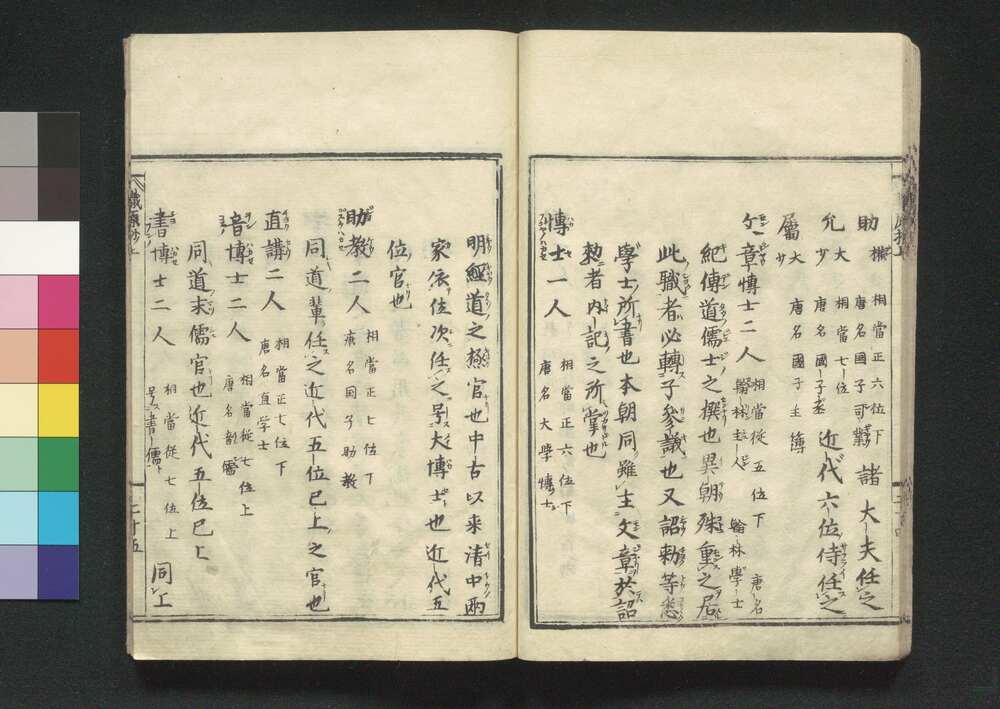 助 權 相當正六位下 唐名國子司業 諸大夫任之
允 大 少 相當七位 唐名國子丞 近代六位侍任之
屬 大 少 唐名國子主簿
文章博士二人 相當從五位下 唐名 翰林主人 翰林學士
紀傳道儒士之撰也異朝殊重之居
此職者必轉子參議也又詔勅等悉
學士所書也本朝同雖主文章於詔
勅者内記之所掌也
博士一人 相當正六位下 唐名大學博士
明經道之極官也中古以來清中兩
家依位次任之号大博士也近代五
位官也
助教二人 相當正七位下 唐名國子助教
同道輩任之近代五位已上之官也
直講二人 相當正七位下 唐名直学士
音博士二人 相當從七位上 唐名
同道末儒官也近代五位已上
書博士二人 相當從七位上 号書儒 同上
職原抄上 二十五